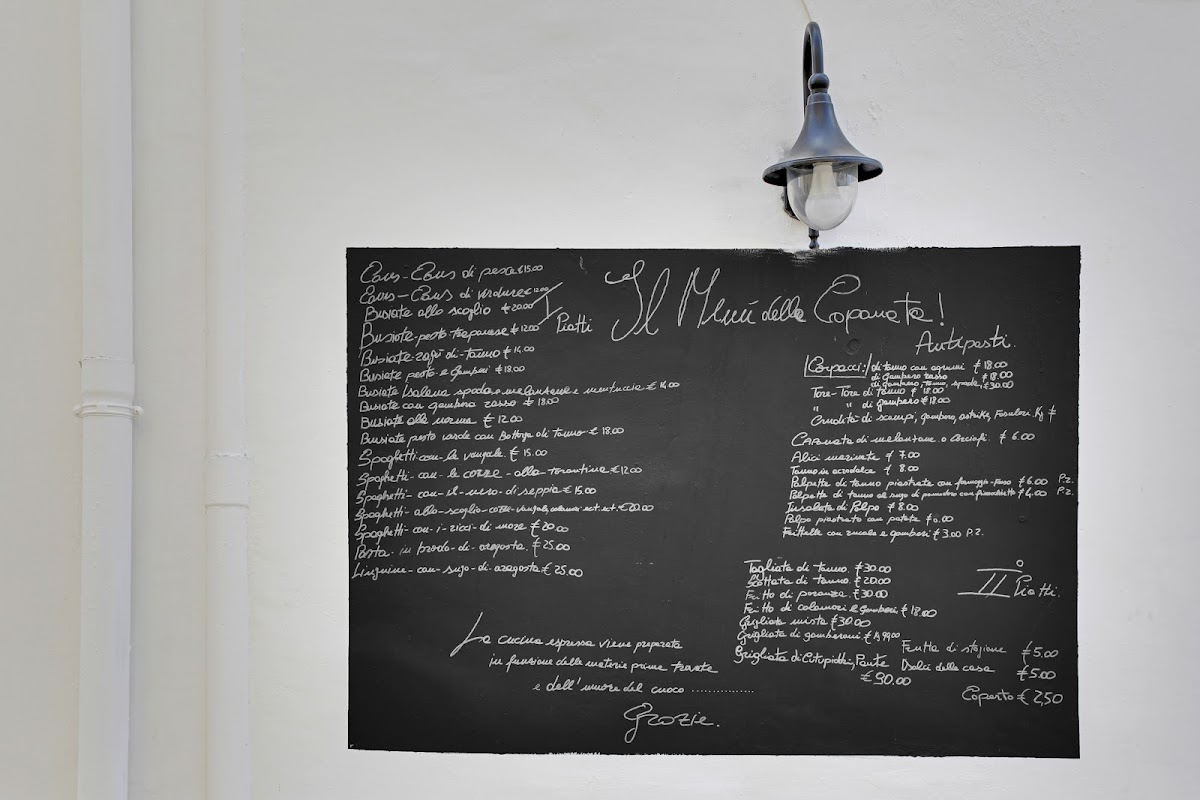 Il Menú della Copanata!
Cous-Cous di pesce € 15.00
Cous-Cous di verdure € 12.00
Busiate allo scoglio € 20.00
I Piatti
Busiate-pesto-trapanese € 12.00
Busiate-ragù-di-tonno € 14.00
Busiate pesto e Gamberi € 18.00
Busiate spada e melanzane e mentuccia € 16.00
Busiate con gambero rosso € 18.00
Busiate alla norma € 12.00
Busiate pesto verde con Bottarga di tonno € 18.00
Spaghetti-con-le vongole € 15.00
Spaghetti-con-le cozze-alla-tarantina € 12.00
Spaghetti-con-il-nero-di-seppia € 15.00
Spaghetti-allo-scoglio-cozze-vongole, calamari ect.ect. € 20.00
Spaghetti-con-i-ricci-di mare € 20.00
Pasta-in brodo-di-aragosta € 25.00
Linguine-con-sugo-di-aragosta € 25,00
Antipasti.
Carpacci: di tonno con agrumi € 18.00
di gambero rosso € 18.00
di gambero, tonno, spada, € 30.00
Tore-Tore di tonno € 18.00
" " di gambero € 18.00
Crudità di scampi, gambero, Kg €
Caponata di melanzane o Carciofi. € 6.00
Alici marinate € 7.00
Tonno in agrodolce € 8.00
Polpette di tonno piastrate con € 6.00 P.z.
Polpette di tonno al sugo di pomodoro con finocchietto € 4.00 P.z.
Insalata di Polpo € 8.00
Polpo piastrato con patate
Frittelle con e gamberi € 3.00 P.Z.
II° Piatti.
Tagliata di tonno. € 30.00
Scottata di tonno. € 20.00
Fritto di paranza. € 30.00
Fritto di calamari e Gamberi. € 18.00
Grigliata mista € 30.00
Grigliata di gamberoni €
Grigliata di
€ 90.00
Frutta di stagione € 5.00
Dolci della casa € 5.00
Coperto € 2,50
La cucina espressa viene preparata
in funzione delle materie prime trovate
e dell'umore del cuoco ................
Grazie.